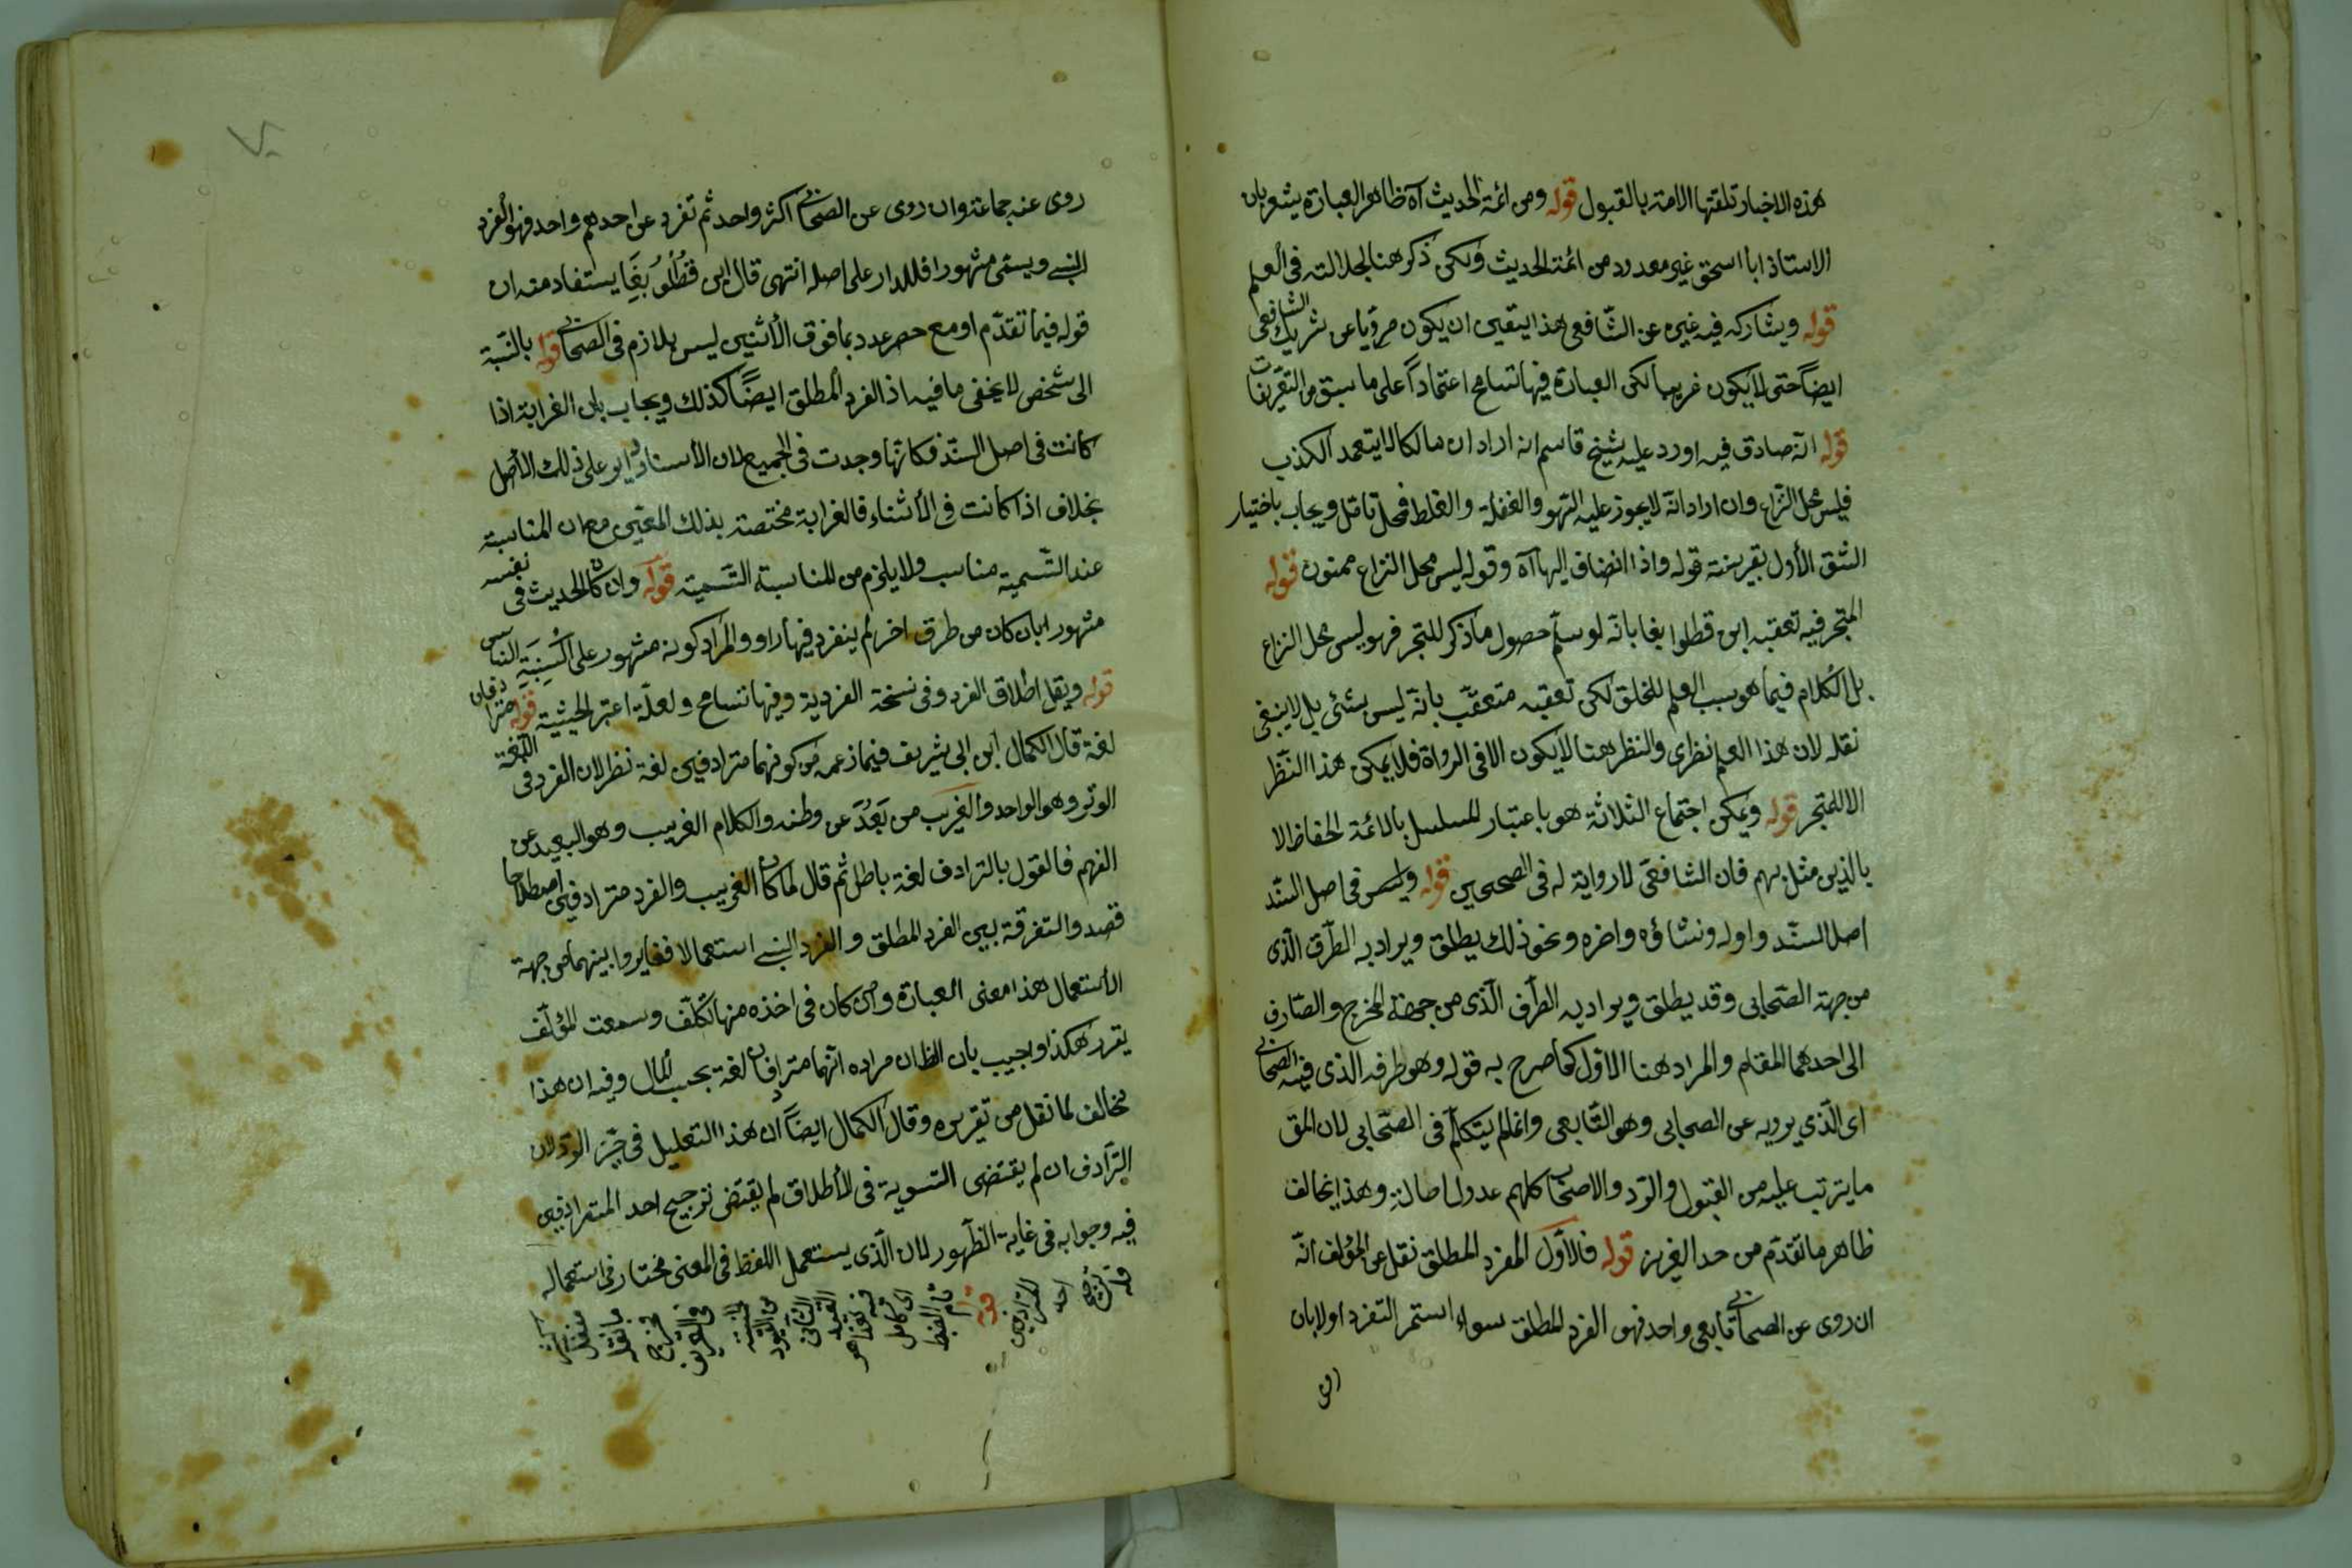 هذه الاخبار تلقتها الامة بالقبول قوله ومن ائمة الحديث آه ظاهر العبارة يشعر بان
الاستاذ ابا اسحق غير معدود من ائمة الحديث ولكن ذكر هنا لجلالته فى العلم
قوله ويشاركه فيه غيره عن الشافعى هذا يتقيى ان يكون مرويا عن شريك الشافعى
ايضاً حتى لا يكون غريبا لكن العبارة فيها تسامح اعتماداً على ما سبق من التعريفات
قوله انه صادق فيه اورد عليه شيخ قاسم انه اراد ان مالكا لا يتعمد الكذب
فليس محل النزاع وان اراد انه لا يجوز عليه السهو والغفلة والغلط فمحل تأمل ويجاب باختيار
الشق الأول بقرينة قوله واذا انضاف اليها آه وقوله ليس محل النزاع ممنوع قوله
المتجر فيه تعقبه ابن قطلوا بغا بانه لو سلم حصول ما ذكر للتجر فهو ليس محل النزاع
بل الكلام فيما هو سبب العلم للخلق لكن تعقبه متعقّب بانه ليس بشئ بل لا ينبغى
نقله لان هذا العلم نظرى والنظر هنا لا يكون الا فى الرواة فلا يمكن هذا النّظر
الا للمتجر قوله ويمكن اجتماع الثلاثة هو باعتبار المسلسل بالائمة الحفاظ الا
بالذين مثل بهم فان الشافعى لا رواية له فى الصحيحين قوله وليس فى اصل السّند
اصل السّند واوله ونشاؤه واخره ونحو ذلك يطلق ويراد به الطرق الّذى
من جهة الصّحابى وقد يطلق ويراد به الطرف الّذى من جهة المخرج والصّارف
الى احدهما المقام والمراد هنا الاوّل كما صرح به قوله وهو طرفه الذى فيه الصحابى
اى الّذي يرويه عن الصحابى وهو التّابعى وانما لم يتكلّم فى الصّحابى لان المق
ما يترتب عليه من القبول والرّد والاصحاب كلهم عدول اصالة وهذا يخالف
ظاهر ما تقدّم من حد العزيز قوله فالأوّل المفرد المطلق نقل عن المؤلف انّه
ان روى عن الصحابى تابعى واحد فهو الفرد المطلق سواء استمر التفرد او لا بان
روى عنه جماعة وان روى عن الصحابى اكثر واحد ثم تفرد عن احدهم واحد فهو الفرد
النسبى ويسمى مشهورا فالمدار على اصله انتهى قال ابن قُطْلُوبُغَا يستفاد منه ان
قوله فيما تقدّم او مع حصر عدد بما فوق الأثنين ليس بلازم فى الصحابى قوله بالنسبة
الى شخص لا يخفى ما فيه اذ الفرد المطلق ايضًا كذلك ويجاب بان الغرابة اذا
كانت فى اصل السنّد فكانّها وجدت فى الجميع لان الأسناد دايره على ذلك الأصل
بخلاف اذا كانت فى الأثناء فالغرابة مختصة بذلك المعيّن مع ان المناسبة
عند التّسمية مناسب ولا يلزم من المناسبة التّسمية قوله وان كان الحديث فى نفسه
مشهورا بان كان من طرق اخر لم ينفرد فيها راو والمراد كونه مشهور على أَلْسِنَةِ الناس
قوله ويقل اطلاق الفرد وفى نسخة الفردية وفيها تسامح ولعلّه اعتبر الحيثية قوله مترادفان
لغة قال الكمال ابن ابى شريف فيما زعمه من كونهما مترادفين لغة نظر لان الفرد فى اللغة
الوتر وهو الواحد والغريب من بَعُدَ عن وطنه والكلام الغريب وهو البعيد عن
الفهم فالقول بالترادف لغة باطل ثم قال لما كان الغريب والفرد مترادفين اصطلاحا
قصد والتفرقة بين الفرد المطلق والفرد النسبى استعمالا فغايروا بينهما من جهة
الأستعمال هذا معنى العبارة وان كان فى اخذه منها تكلّف وسمعت المؤلّف
يقرر هكذا واجيب بان الظان مراده انّهما مترادفان لغة بحسب المآل وفيه ان هذا
مخالف لما نقل من تقريره وقال الكمال ايضاً ان هذا التعليل فى حيّز الرّد لان
الترادف ان لم يقتضى التسوية فى الأطلاق لم يقتض ترجيح احد المترادفين
فيه وجوابه فى غاية الظّهور لان الّذى يستعمل اللفظ فى المعنى مختار فى استعماله